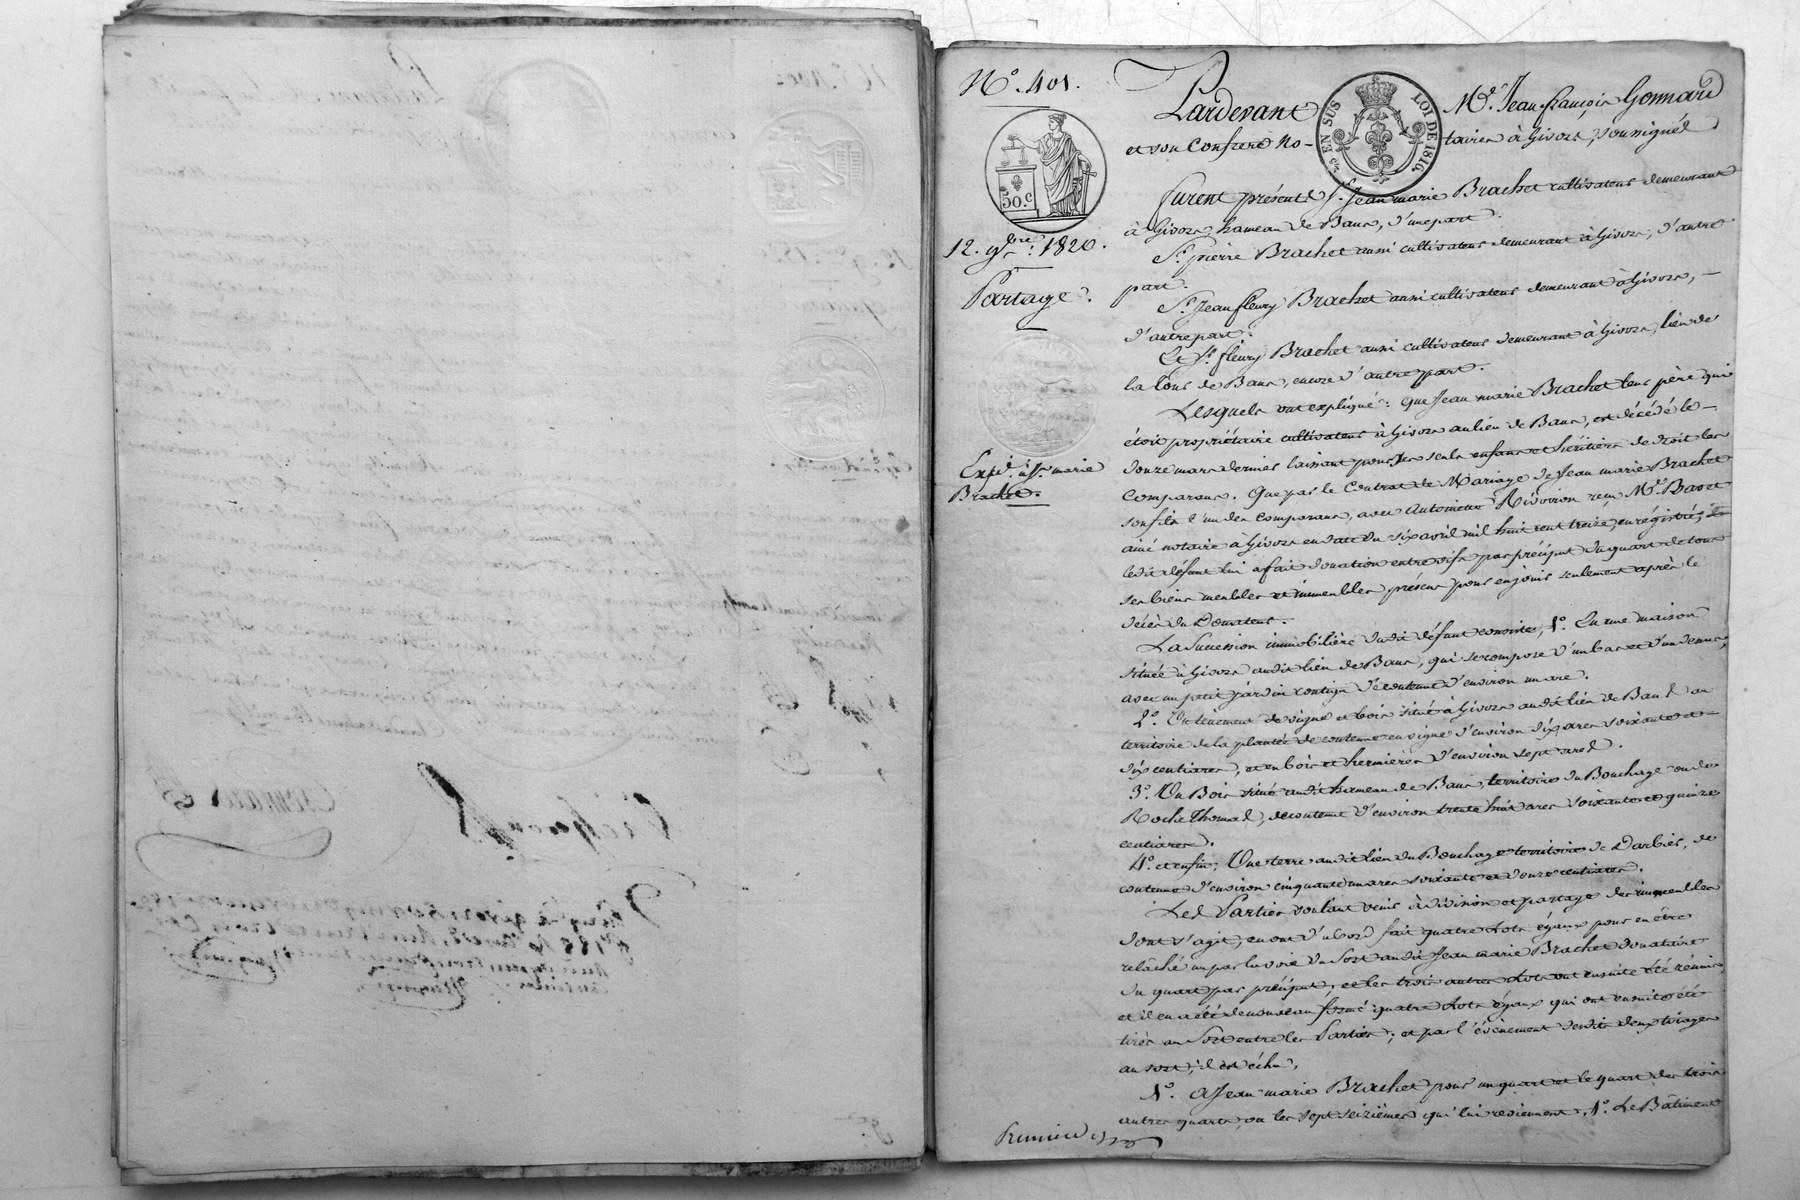 N.º 401.
50.c
12. 9bre. 1820.
Partage.
Expé. à Jn. marie
Brachet.
EN SUS
LOI DE 1816.
Pardevant Me. Jean françois Gonnard
et son Confrere No- taires à Givors, soussignés
furent présents Sr. Jean marie Brachet cultivateur demeurant
à Givors, hameau de Bans, d'une part.
Sr. pierre Brachet aussi cultivateur demeurant à Givors, d'autre
part.
Sr. Jean fleury Brachet aussi cultivateur demeurant à Givors, -
d'autre part.
Et Sr. fleury Brachet aussi cultivateur demeurant à Givors, lieu de
la Tour de Bans, encore d'autre part.
Lesquels ont expliqué: que Jean marie Brachet leur père qui
étoit propriétaire cultivateur à Givors au lieu de Bans, est décédé le -
douze mars dernier laissant pour ses seuls enfans et héritiers de droit les
Comparans. Que par le Contrat de Mariage de Jean marie Brachet
son fils l'un des Comparans, avec Antoinette Rivoiron reçu Me.
ainé notaire à Givors en date du six avril mil huit cent treize, enrégistré,
ledit défunt lui a fait donation entre vifs par préciput du quart de tous
ses biens meubles et immeubles présens pour en jouir seulement après le
décès du Donateur.
La Succession immobilière dudit défunt consiste, 1º. En une maison
située à Givors audit lieu de Bans, qui se compose d'un bas et d'un dessus,
avec un petit jardin contigu de contenue d'environ un are.
2º. Un tènement de vigne et bois situé à Givors audit lieu de Bans au
territoire de la plantée de contenue en vigne d'environ dix ares soixante et
dix centiares, et en bois et hermières d'environ sept ares.
3º. Un Bois situé audit hameau de Bans, territoire du Bouchage ou de
Roche Thomas, de contenue d'environ trente huit ares soixante et quinze
centiares.
4º. et enfin, Une terre audit lieu du Bouchage territoire de Darbier, de
contenue d'environ cinquante un ares soixante et douze centiares.
Les Parties voulant venir à division et partage des immeubles
dont s'agit, en ont d'abord fait quatre Lots égaux pour en être
relâché un par la voie du Sort audit Jean marie Brachet donataire
du quart par préciput, et les trois autres Lots ont ensuite été réunis
et il en a été de nouveau formé quatre Lots égaux qui ont ensuite été
tirés au Sort entre les Parties; et par l'événement desdits deux tirages
au sort, il est échu,
1º. A Jean marie Brachet pour un quart et le quart des trois
autres quarts, ou les sept seizièmes qui lui reviennent, 1º. Le Bâtiment